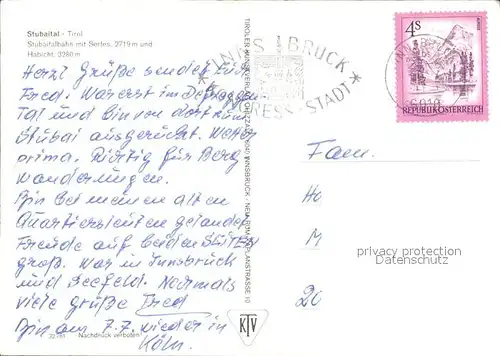 Stubaital - Tirol
Stubaitalbahn mit Serles, 2719 m und
Habicht, 3280 m
Herzl. Grüße sendet Euch
Fred. War erst im
Tal und bin von dort zum
Stubai ausgerückt. Wetter
prima. Richtig für Berg
wanderungen.
Bin bei meinen alten
Quartiersleuten gelandet
Freude auf beiden SEITEN
groß. War in Innsbruck
und Seefeld. Nochmals
viele Grüße Fred
Bin am 7.7. wieder in
Köln.
Nachdruck verboten!
TIROLER KUNSTVERLAG CHIZZALI
INNSBRUCK - NEU-RUM, KAPLANSTRASSE 10
KTV
INNSBRUCK
KONGRESS-STADT
4S
REPUBLIK ÖSTERREICH
6010
Fam.
Ho
M
privacy protection
AnsichtskartenVersand.com